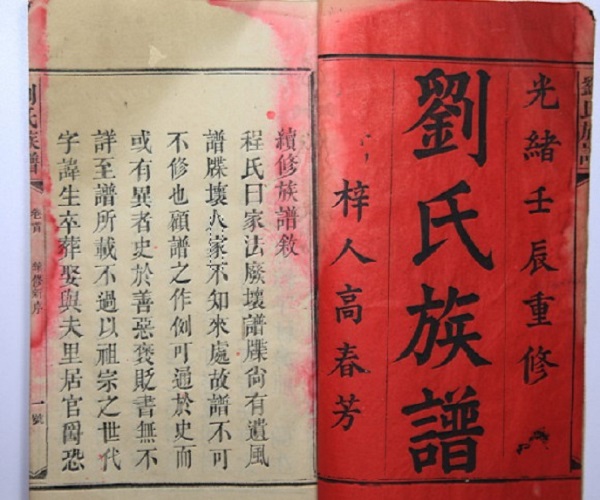 光緒壬辰重修
劉氏族譜
梓人高春芳
續修族譜敘
程氏曰家法廢壞譜牒尙有遺風
譜牒壞人家不知來處故譜不可
不修也顧譜之作例可通於史而
或有異者史於善惡褒貶書無不
詳至譜所載不過以祖宗之世代
字諱生卒葬娶與夫里居官爵恐
劉氏族譜
卷首
一號